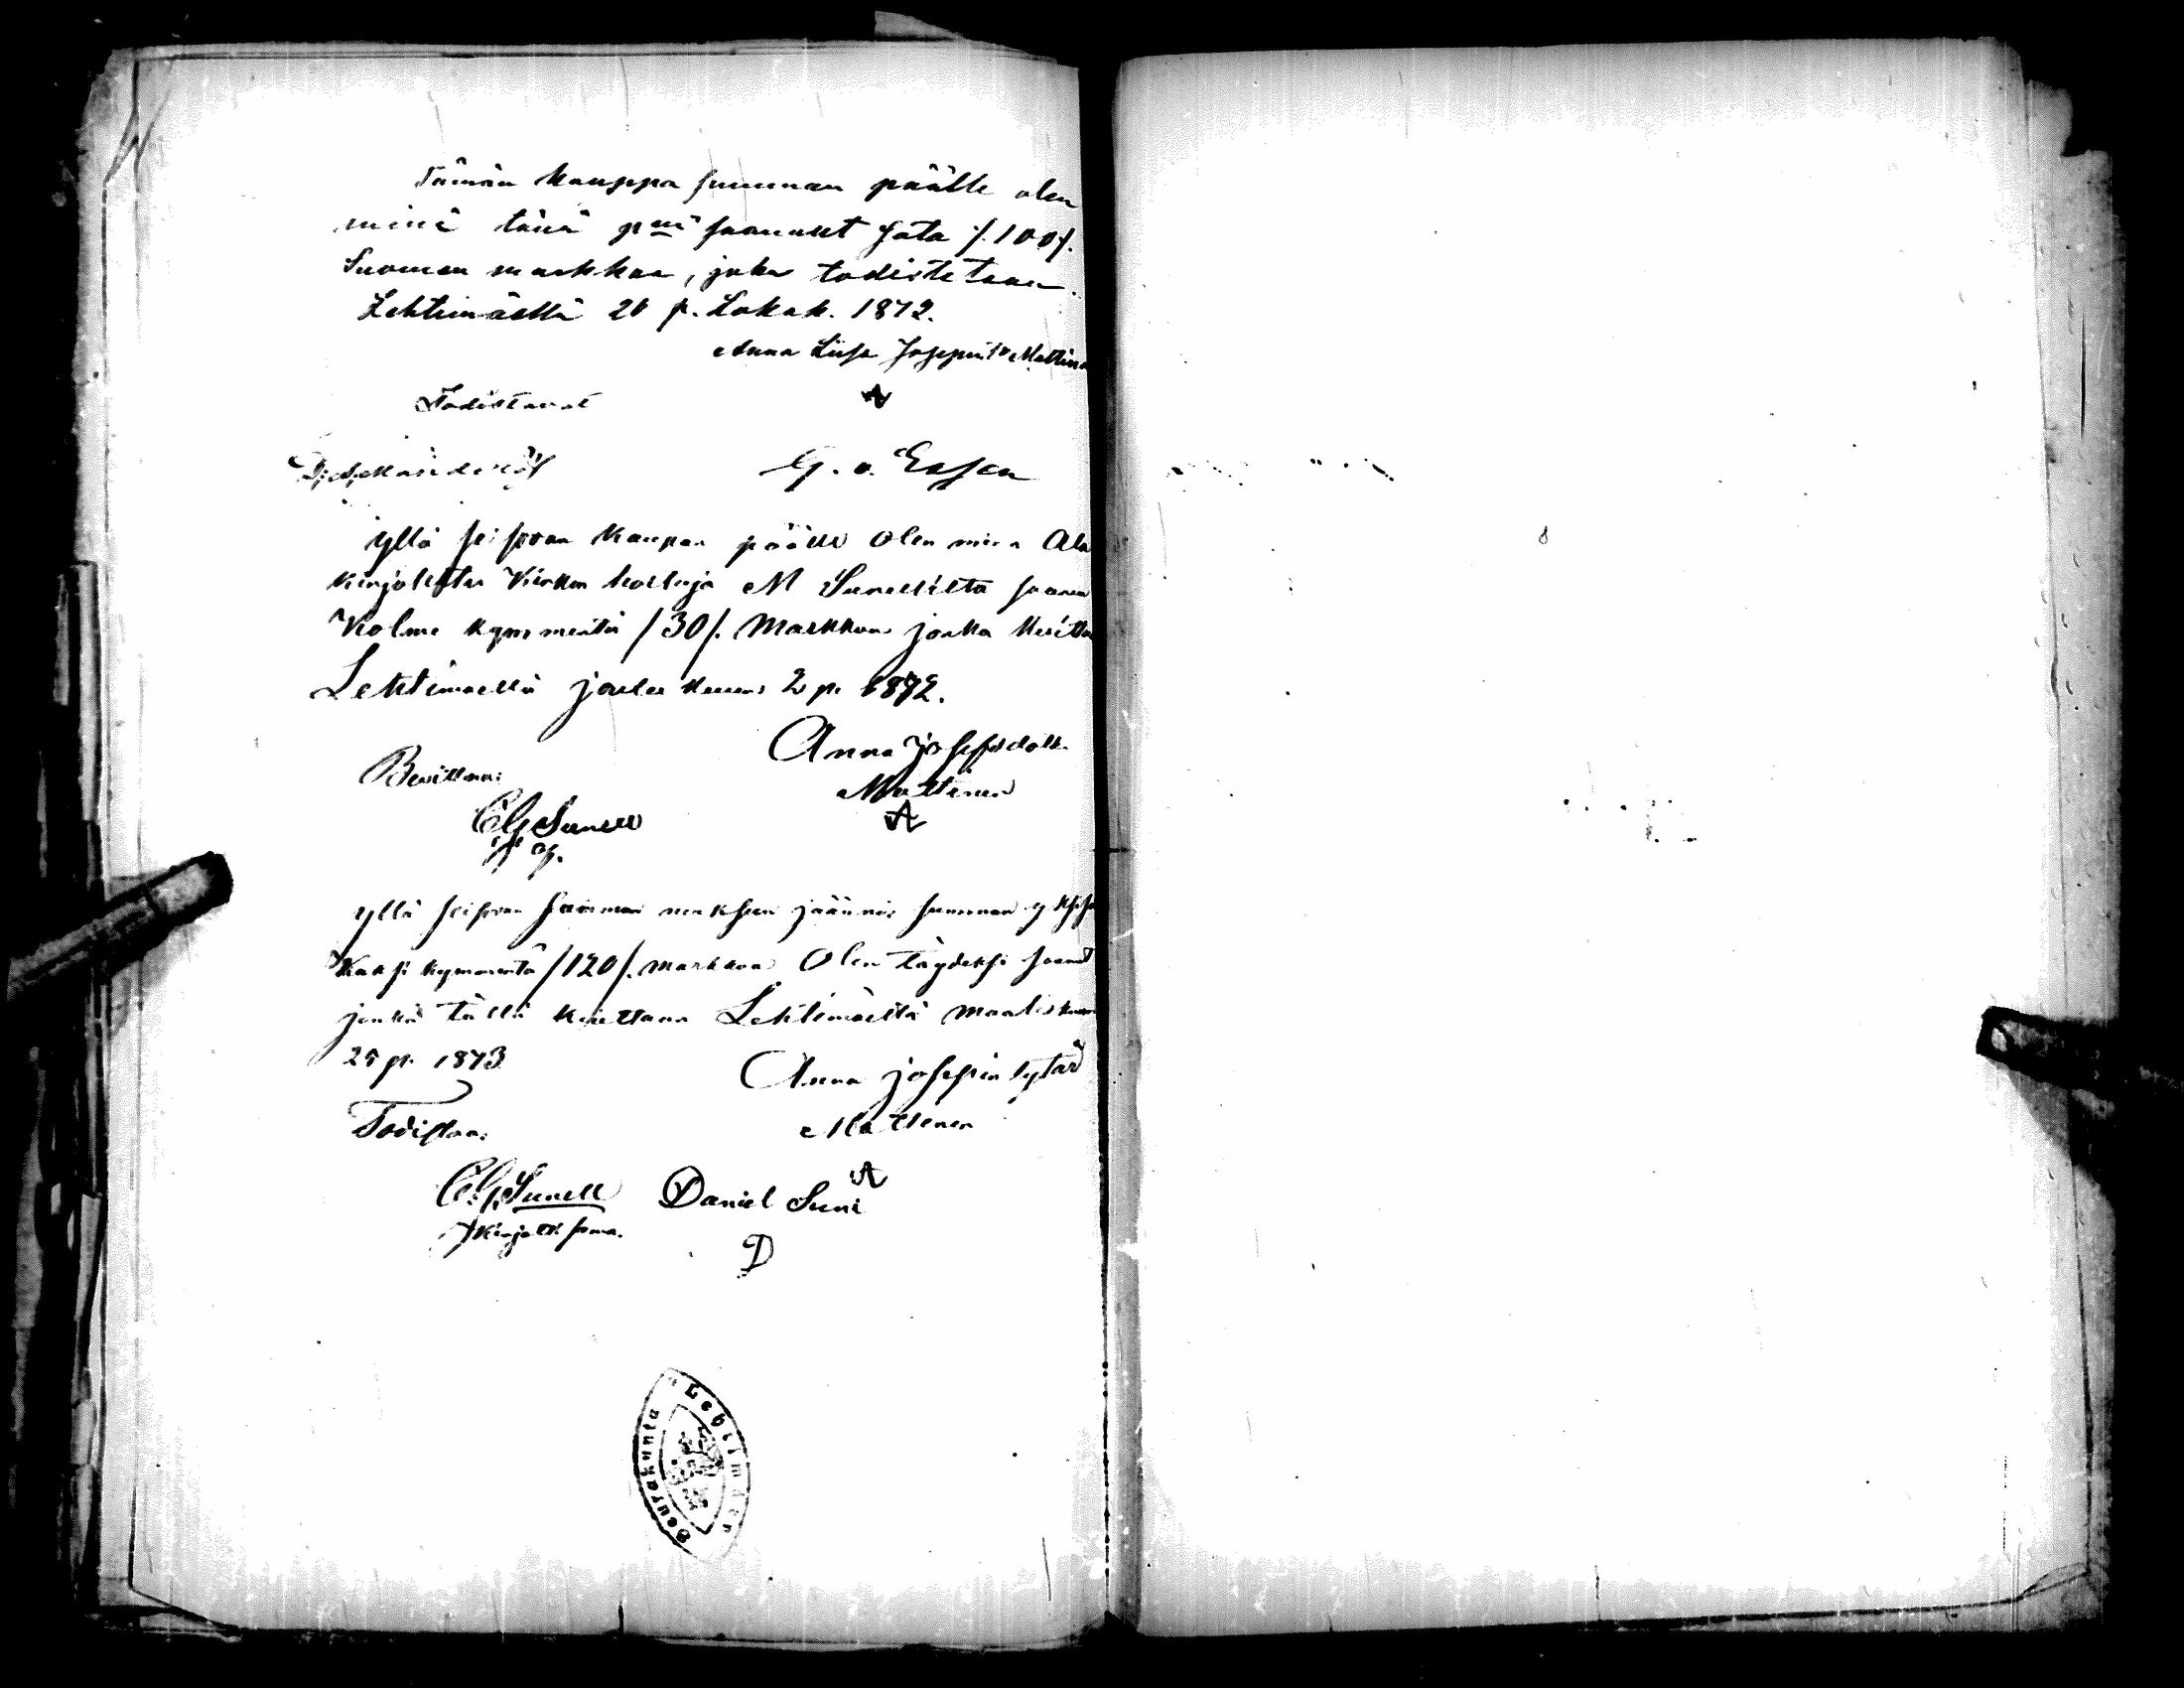 Tämän kauppa summan päälle olen
minä tänä p:nä saanut sata /.100/.
Suomen markkaa, joka todistetaan.
Lehtimäellä 26 p. Lokak. 1872.
Anna Liisa Josepint: Mattinen
Todistavat
G. v. Essen
yllä seisovan kaupan päälle olen minä Ala
kirjoitettu Kirkon M Sunellilta saanu
Kolme kymmentä /30/. Markkaa jonka kvitta
Lehtimäellä joulu kuun 2 p. 1872.
Anna josefsdottr
Bevittnar:
Mattinen
A
C G Sunell
yllä seisovan summan maksun jäännös summan yksisa
Kaksi kymmentä /120/. markkaa Olen täydeksi saanut
jonka tällä kvittaan Lehtimäellä maaliskuun
25 p. 1873
Anna josepin tytär
Todistaa:
Mattinen
A
C. G. Sunell Daniel Suni
D
Lehtimäen
Seurakunta